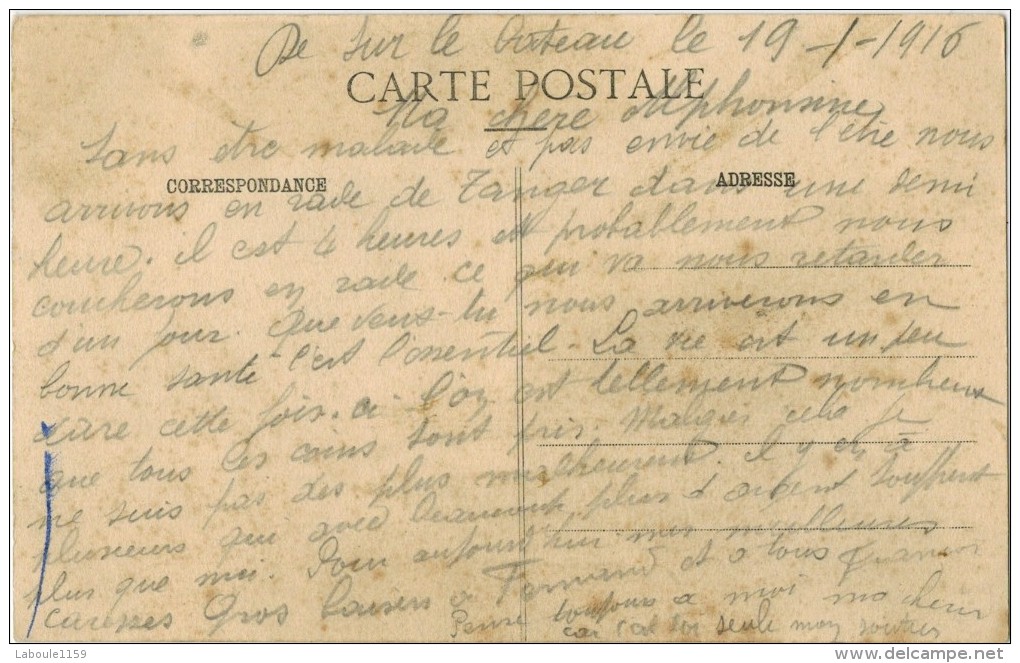 De sur le bateau le 19-1-1916
CARTE POSTALE
Ma chere Alphonsine
Sans etre malade et pas envie de l'etre nous
CORRESPONDANCE
ADRESSE
arrivons en rade de Tanger dans une demi
heure. il est 4 heures et probablement nous
coucherons en rade ce qui va nous retarder
d'un jour. Que veux-tu nous arriverons en
bonne santé c'est l'essentiel. La vie est un peu
dure cette fois-ci. l'on est tellement nombreux
que tous les coins sont pris. Malgrés cela je
ne suis pas des plus malheureux. il y en à
plusieurs qui avec beaucoup plus d'argent souffrent
plus que moi. Pour aujourd'hui mes meilleures
caresses Gros baisers a Fernand et a tous
Pense toujours a moi ma
car toi seule mon
Laboule1159
delcampe.net